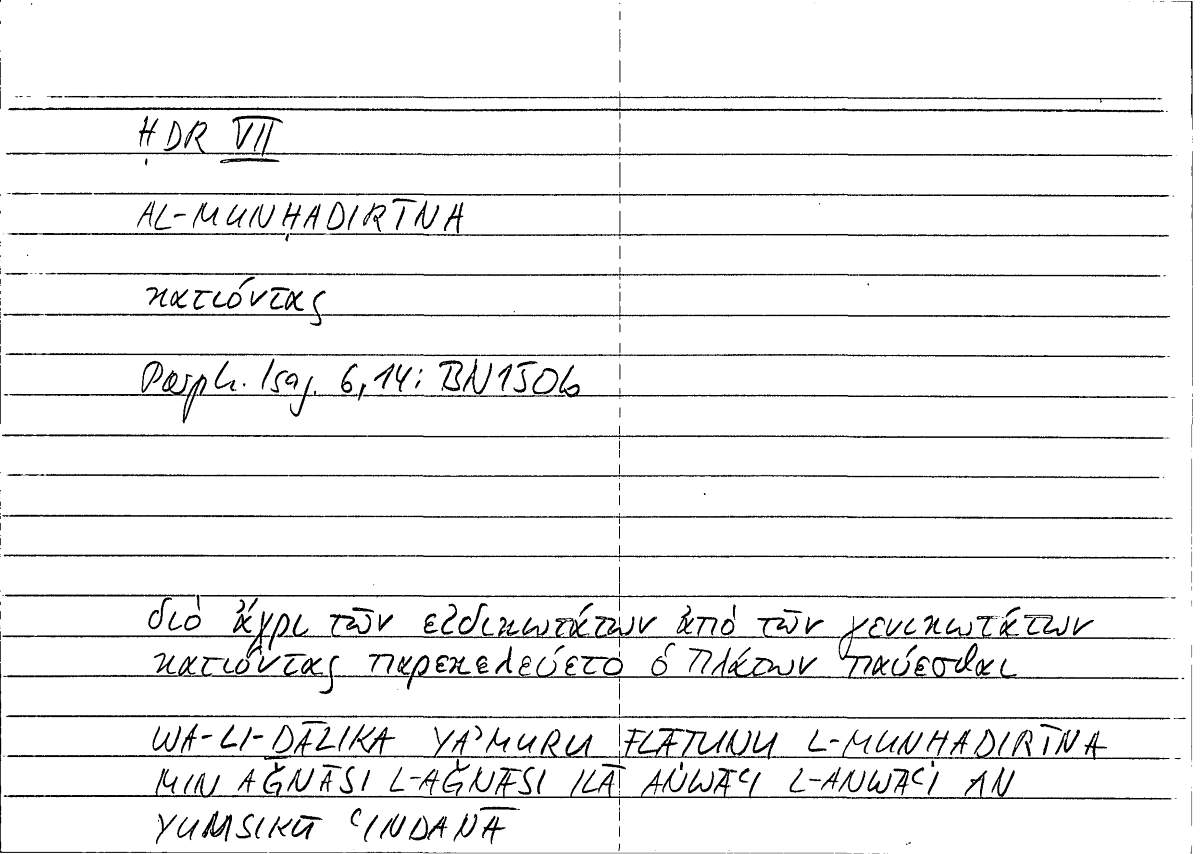 ḤDR VII
AL-MUNḤADIRĪNA
κατιόντας
Porph. Isag. 6,14: BN150b
διὸ ἄχρι τῶν εἰδικωτάτων ἀπὸ τῶν γενικωτάτων
κατιόντας παρεκελεύετο ὁ Πλάτων παύεσθαι
WA-LI-ḎĀLIKA YAʾMURU FLĀṬUNU L-MUNHADIRĪNA
MIN AĞNĀSI L-AĞNĀSI ILĀ ANWĀʿI L-ANWĀʿI AN
YUMSIKŪ ʿINDANĀ